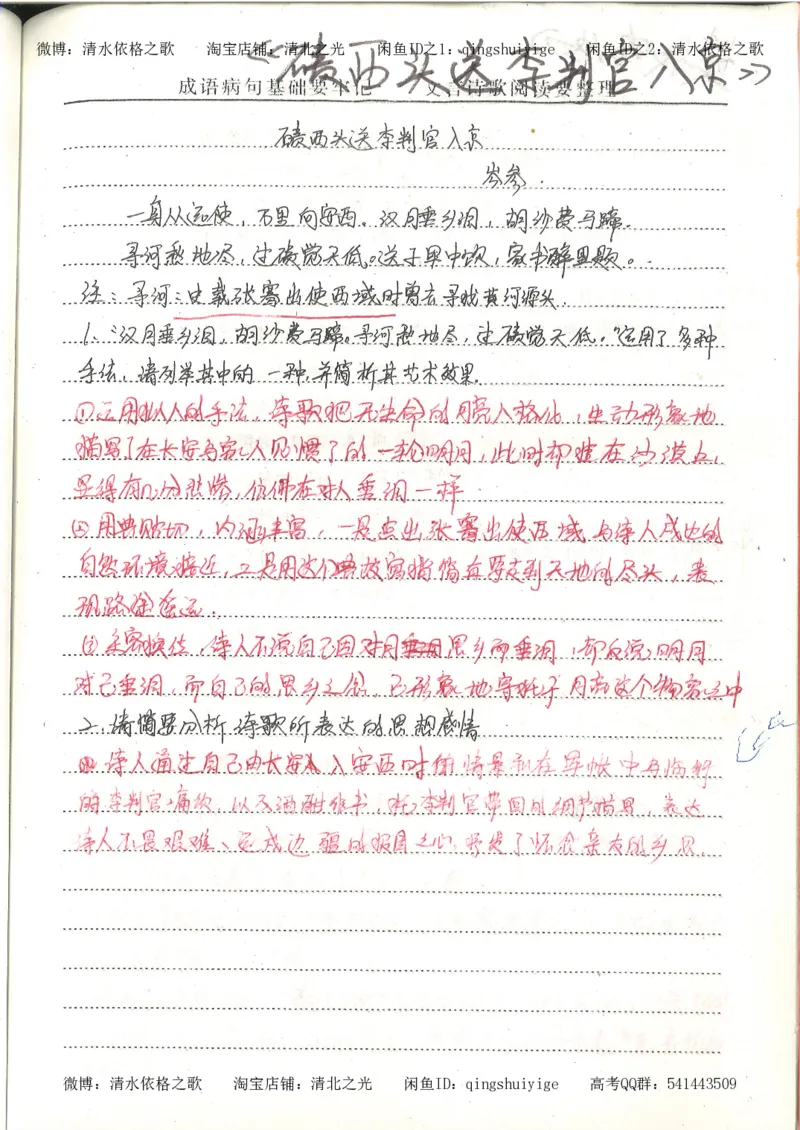 微博：清水依格之歌 淘宝店铺：清北之光 闲鱼ID之1：qingshuiyige 闲鱼ID之2：清水依格之歌
《碛西头送李判官入京》
成语病句基础要牢记 文言诗歌阅读要整理
碛西头送李判官入京
岑参.
一身从远使，万里向安西。汉月垂乡泪，胡沙费马蹄.
寻河愁地尽，过碛觉天低。送子军中饮，家书醉里题。
注：寻河：史载张骞出使西域时曾去寻找黄河源头.
1、"汉月垂乡泪，胡沙费马蹄。寻河愁地尽，过碛觉天低。"运用了多种
手法，请列举其中的一种，并简析其艺术效果.
①运用拟人的手法，诗歌把无生命的月亮人格化，生动形象地
描写了在长安与家人见惯了的一轮明月，此时却挂在沙漠上，
显得有几分悲愁，仿佛在对人垂泪一样.
②用典贴切，内涵丰富，一是点出张骞出使西域与诗人戍边的
自然环境接近，二是用这个典故富指 在寻走到天地的尽头，表
现路途遥远.
③主客换位，诗人不说自己因对月思乡而垂泪，却反说明月
对己垂泪，而自己的思乡之念，已形象地寄托于月亮这个物象之中
二、请简要分析诗歌所表达的思想感情
诗人通过自己由长安入安西时的情景和在军帐中与临行
的李判官痛饮，以及酒酣作书，托李判官带回的细节描写，表达
诗人不畏艰难、远戍边疆的报国之心，抒发了怀念亲友的乡思.
微博：清水依格之歌 淘宝店铺：清北之光 闲鱼ID：qingshuiyige 高考QQ群：541443509